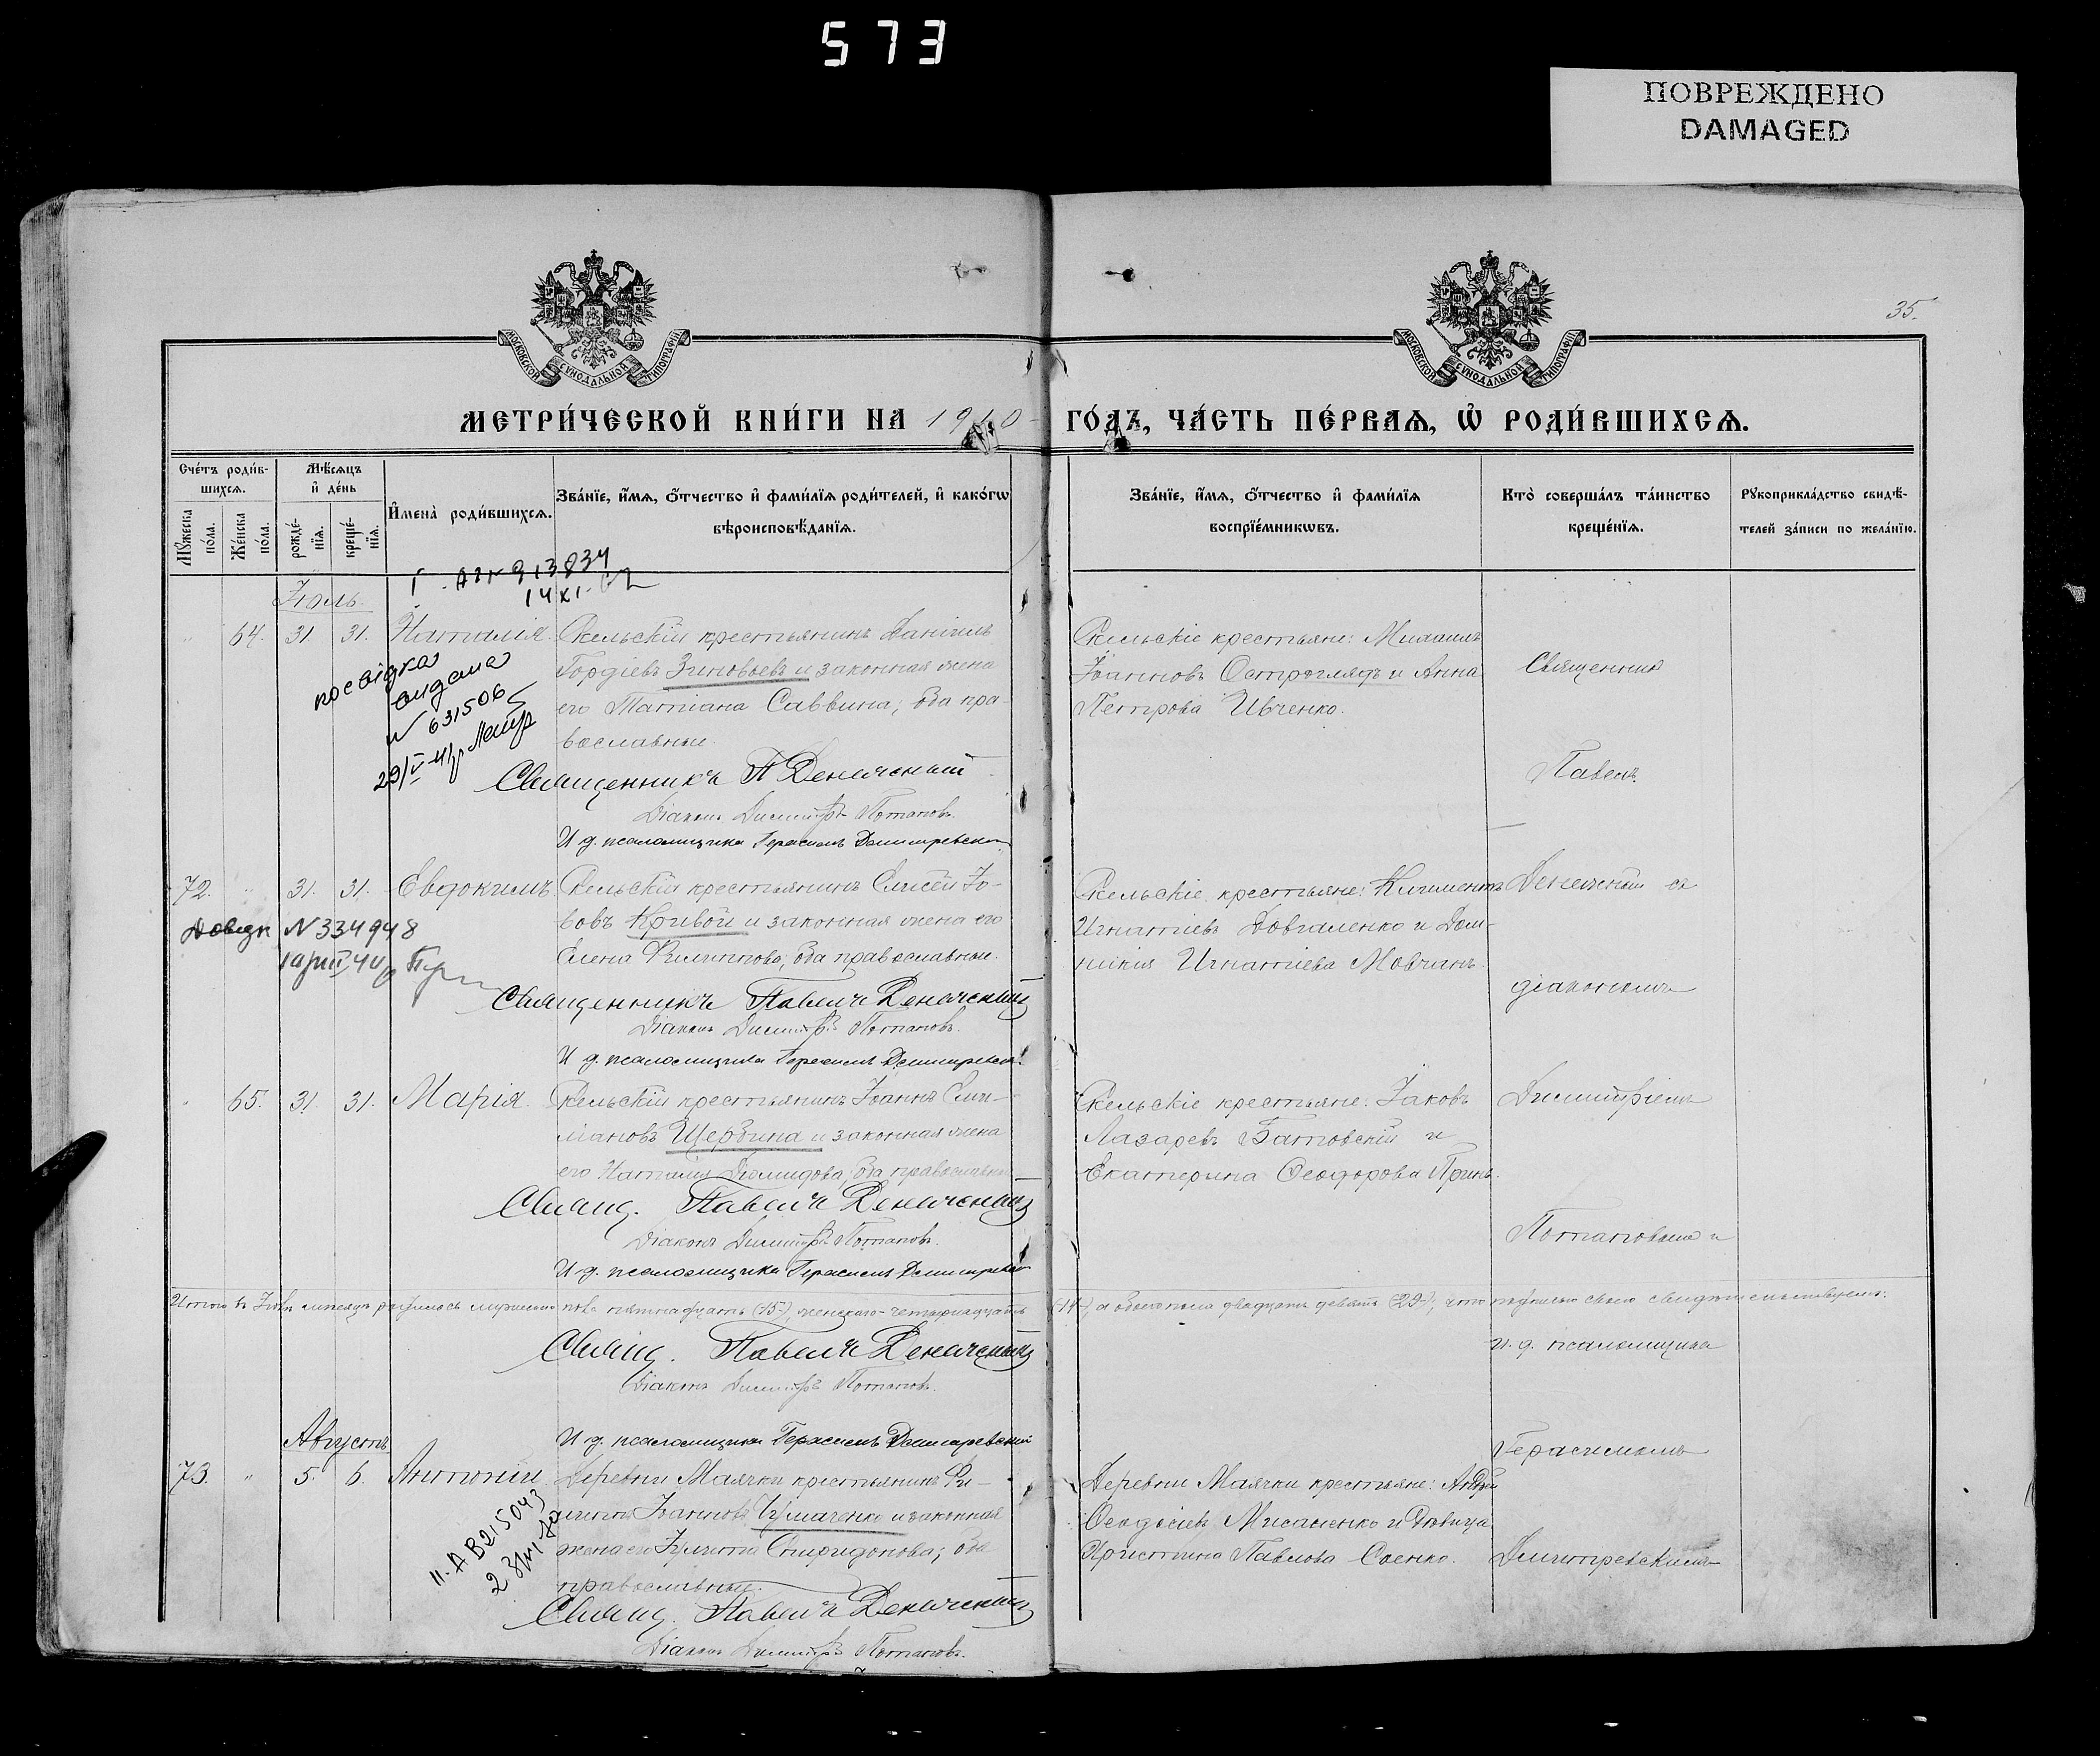 573
ПОВРЕЖДЕНО
DAMAGED
35.
МОСКОВСКОЙ СУНОДАЛЬНОЙ ТИПОГРАФІИ
МОСКОВСКОЙ СУНОДАЛЬНОЙ ТИПОГРАФІИ
МЕТРИ́ЧЕСКОЙ КНИ́ГИ НА 1910 ГО́ДЪ, ЧА́СТЬ ПЕ́РВАѦ, Ѡ҆ РОДИ́ВШИХСѦ.
Сче́тъ роди́вшихсѧ.
Мꙋ́жеска по́ла.
Же́нска по́ла.
Мѣ́сѧцъ и҆ де́нь
рожде́нїѧ.
креще́нїѧ.
И҆мена̀ роди́вшихсѧ.
Зва́нїе, и҆́мѧ, ѻ҆́тчество и҆ фами́лїѧ роди́телей, и҆ како́гѡ
вѣроисповѣ́данїѧ.
Зва́нїе, и҆́мѧ, ѻ҆́тчество и҆ фами́лїѧ
воспрїе́мникѡвъ.
Кто̀ соверша́лъ та́инство
креще́нїѧ.
Рꙋкоприкла́дство свидѣ́-
телей за́писи по жела́нїю.
913834
14 XI
Іюль.
64. 31. 31. Наталія.
Скельскій крестьянинъ Даніилъ
Гордіевъ Зиновьевъ и законная жена
его Татіана Саввина; оба пра-
вославные.
посвідка
видана
№ 631506
29/V-41р
Священникъ П Деначеный
Діаконъ Димитрій Потаповъ.
И д. псаломщика Герасимъ Димитревскій
Скельскіе крестьяне: Михаилъ
Іоанновъ Остроглядъ и Анна
Петрова Ивченко.
Священникъ
Павелъ
72. " 31. 31. Евдокимъ
Скельскій крестьянинъ Елисей Іо-
вовъ Кривой и законная жена его
Елена Филиппова; оба православные.
Довідк № 334948
Священникъ Павелъ Деначеный
Діаконъ Димитрій Потаповъ.
И д. псаломщика Герасимъ Димитревскій
Скельскіе крестьяне: Климентъ
Игнатіевъ Довгаленко и Дом-
никія Игнатіева Мовчанъ.
Деначеный съ
діакономъ
" 65. 31. 31. Марія.
Скельскій крестьянинъ Іоаннъ Сим-
іановъ Щербина и законная жена
его Наталія Діомидова; оба православны
Свящ. Павелъ Деначеный
Діаконъ Димитрій Потаповъ.
И д. псаломщика Герасимъ Димитревскій
Скельскіе крестьяне: Іаковъ
Лазаревъ Батовскій и
Екатерина Ѳеодорова Принь.
Димитріемъ
Потаповымъ и
Итого въ Іюлѣ мѣсяцѣ родилось мужескаго пола пятнадцать (15), женскаго - четырнадцать (14), а обоего пола двадцать девять (29), что подписью своею свидѣтельствуемъ:
Свящ. Павелъ Деначеный
Діаконъ Димитрій Потаповъ.
И д. псаломщика Герасимъ Димитревскій
и. д. псаломщика
Герасимомъ
Августъ
73. " 5. 6. Антоній
Деревни Маячки крестьянинъ Фи-
липпъ Іоанновъ Чумаченко и законная
жена его Іулитта Спиридонова; оба
православные.
II-А В215043
Свящ. Павелъ Деначеный
Діаконъ Димитрій Потаповъ.
Деревни Маячки крестьяне: Андрей
Ѳеодосіевъ Мисаненко и дѣвица
Христина Павлова Соенко.
Димитревскимъ